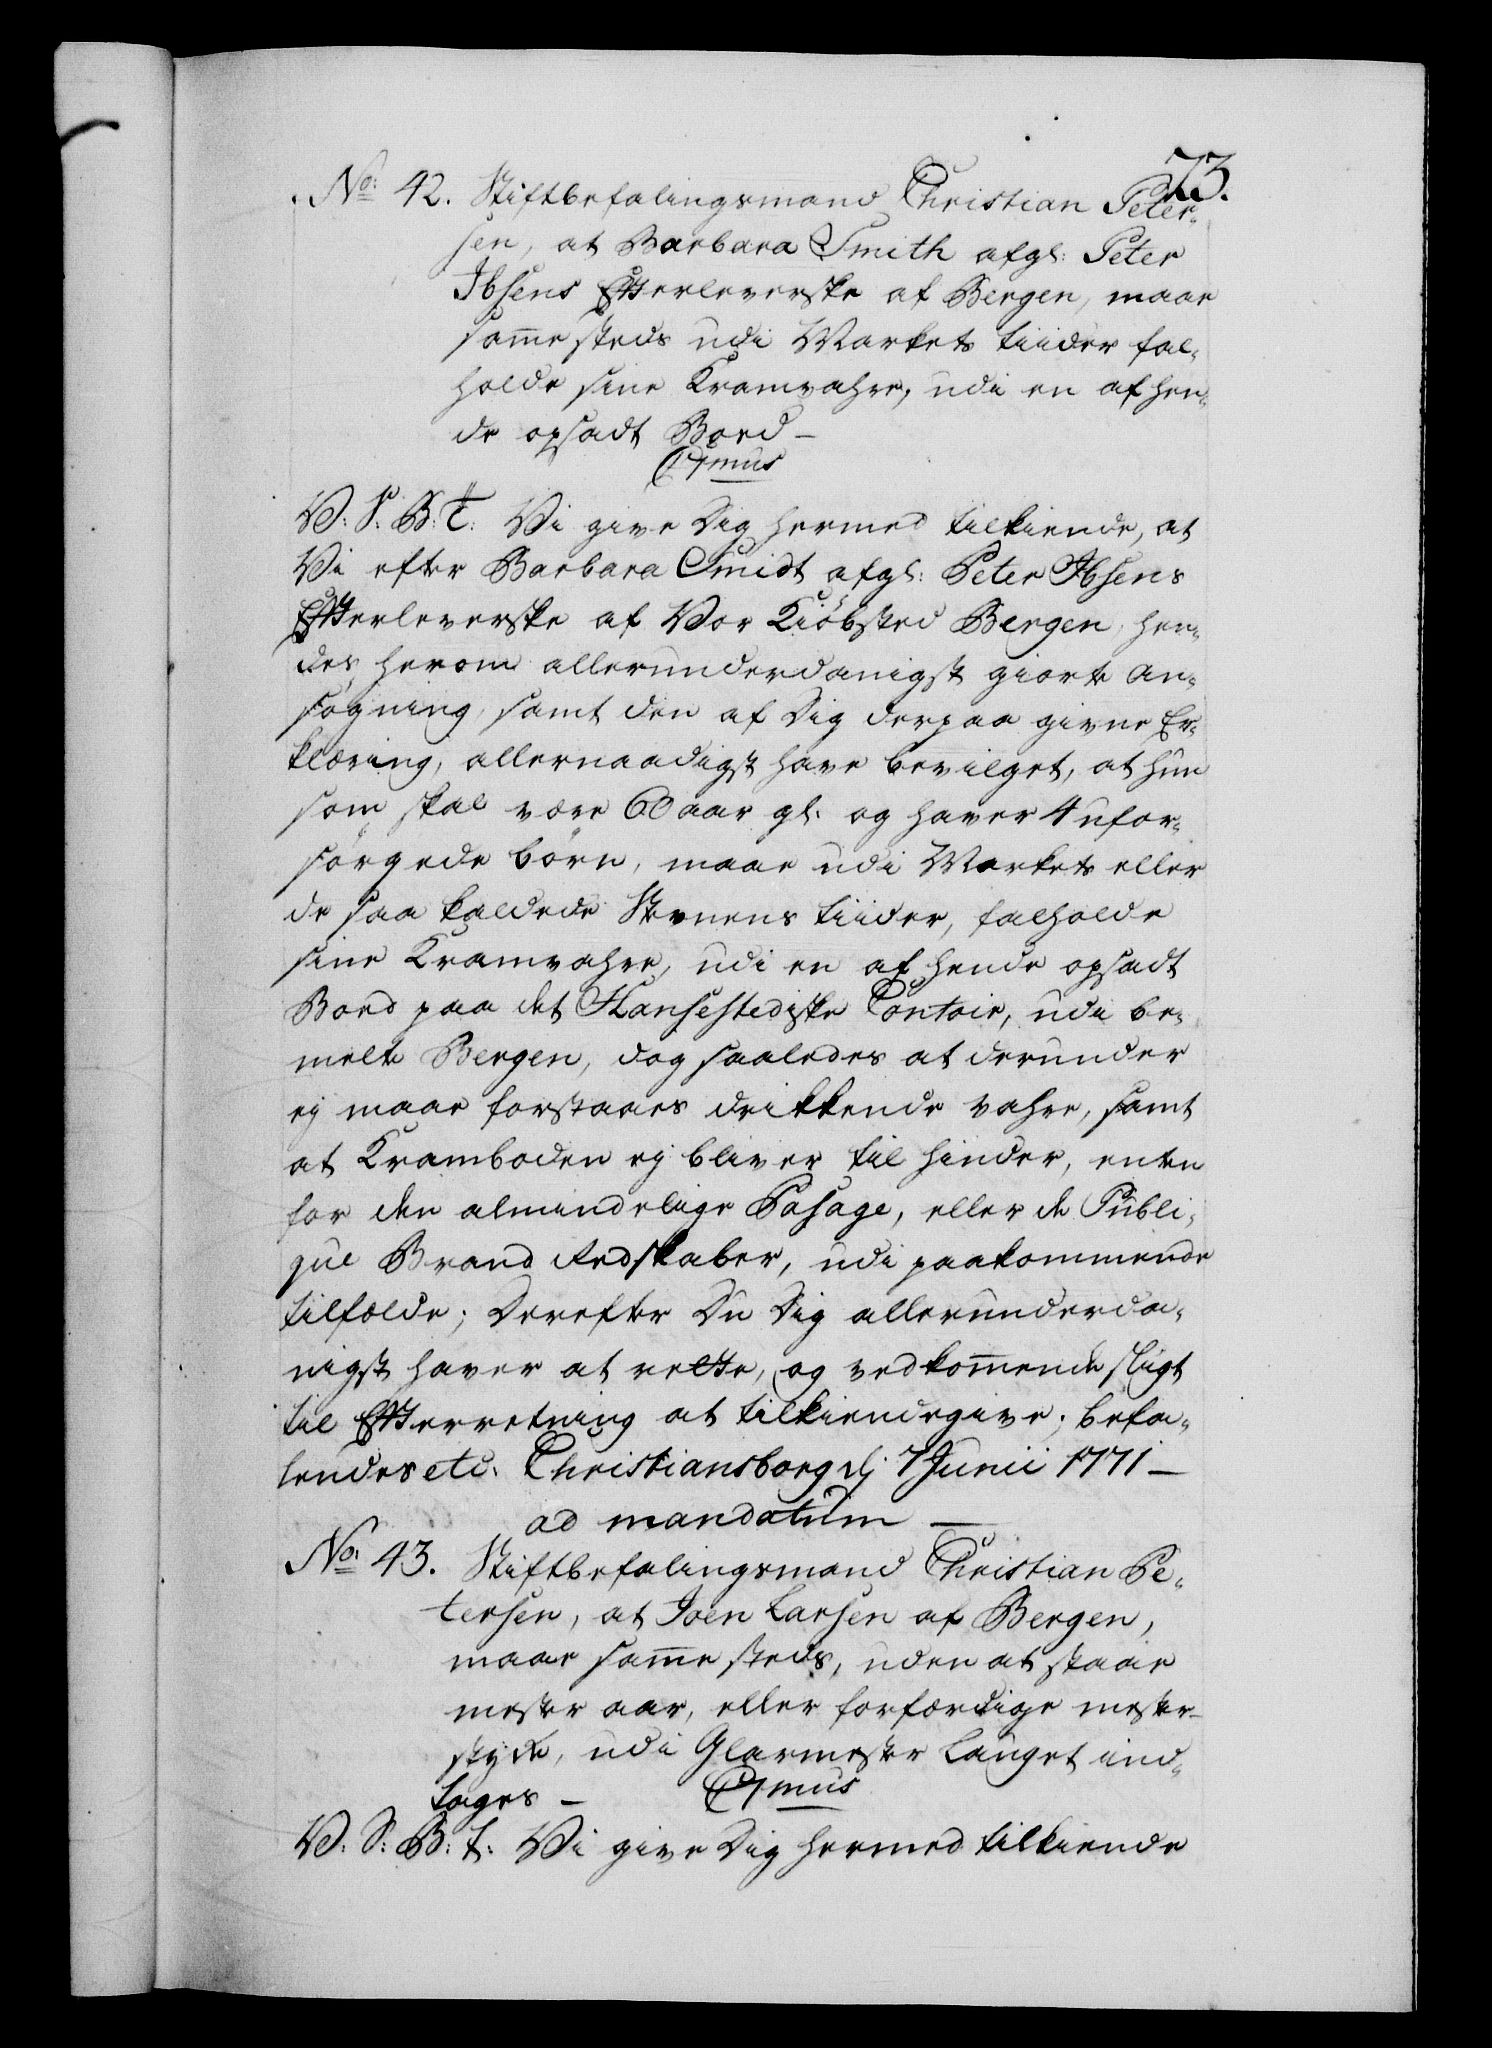 73.
No: 42. Stiftbefalingsmand Christian Peter-
sen, at Barbara Smith afgl: Peter
Ibsens Efterleverske af Bergen, maae
sam̅e steds udi Markets tiider fal-
holde sine Kramvahre, udi en af hen-
de opsadt Boed —
C7mus
V: S: B: T: Vi give Dig hermed tilkiende, at
Vi efter Barbara Smidt afgl: Peter Ibsens
Efterleverske af Vor Kiöbsted Bergen, hen-
des herom allerunderdanigst giorte An-
søgning, samt den af Dig derpaa givne Er-
klæring, allernaadigst have bevilget, at hun
som skal være 60 aar gl. og haver 4 ufor-
sørgede børn, maae udi Markets eller
de saa kaldede Stevnens tiider, falholde
sine Kramvahre, udi en af hende opsadt
Boed paa det Hansestediske Contoir, udi be-
melte Bergen, dog saaledes at derunder
ej maae forstaaes drikkende vahre, samt
at Kramboden ej bliver til hinder, enten
for den almindelige Pasage, eller de Publi-
que Brand Redskaber, udi paakommende
tilfælde; Derefter Du Dig allerunderda-
nigst haver at rette, og vedkom̅ende sligt
til Efterretning at tilkiendegive; befa-
lendes etc. Christiansborg dj 7 Junii 1771 —
ad mandatum —
No: 43. Stiftbefalingsmand Christian Pe-
tersen, at Joen Larsen af Bergen,
maae sam̅e steds, uden at staae
mester aar, eller forfærdige mester-
stycke, udi Glarmester Lauget ind-
tages — C7mus
V: S: B: T. Vi give Dig hermed tilkiende